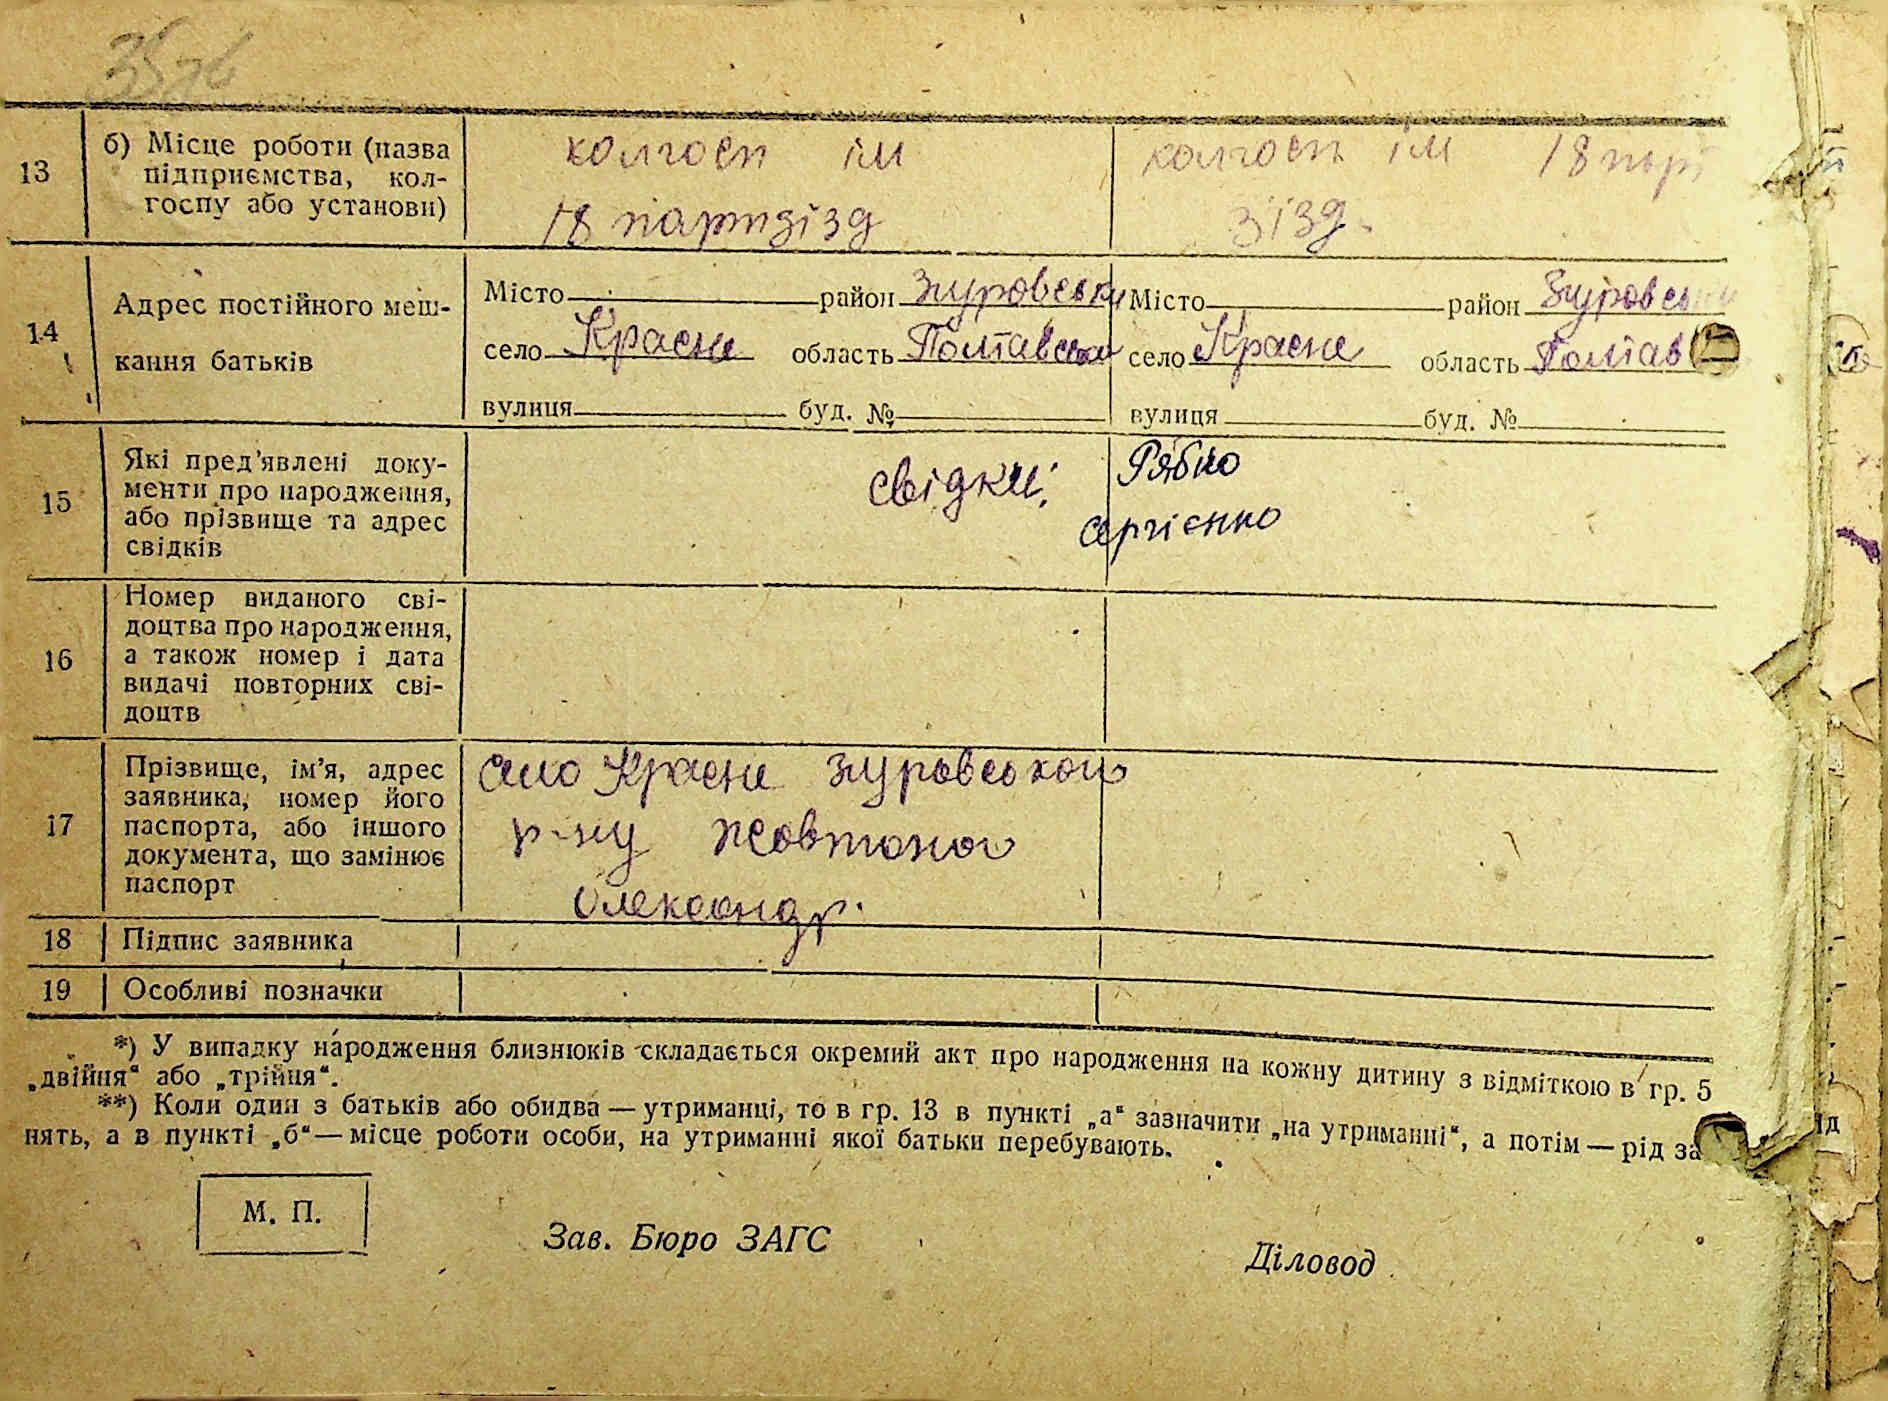 13
б) Місце роботи (назва
підприємства, кол-
госпу або установи)
колгосп ім
18 партзізд
колгосп ім 18 парт
зізд.
14
Адрес постійного меш-
кання батьків
Місто район Згуровськи
село Красне область Полтавськи
вулиця буд. №
Місто район Згуровськи
село Красне область Полтав
вулиця буд. №
15
Які пред’явлені доку-
менти про народження,
або прізвище та адрес
свідків
свідки: Рябко
Сергієнко
16
Номер виданого сві-
доцтва про народження,
а також номер і дата
видачі повторних сві-
доцтв
17
Прізвище, ім’я, адрес
заявника, номер його
паспорта, або іншого
документа, що замінює
паспорт
село Красне Згуровського
р-ну
Олександр.
18 Підпис заявника
19 Особливі позначки
*) У випадку народження близнюків складається окремий акт про народження на кожну дитину з відміткою в гр. 5
„двійня“ або „трійня“.
**) Коли один з батьків або обидва — утриманці, то в гр. 13 в пункті „а“ зазначити „на утриманні“, а потім — рід за
нять, а в пункті „б“ — місце роботи особи, на утриманні якої батьки перебувають.
М. П.
Зав. Бюро ЗАГС
Діловод